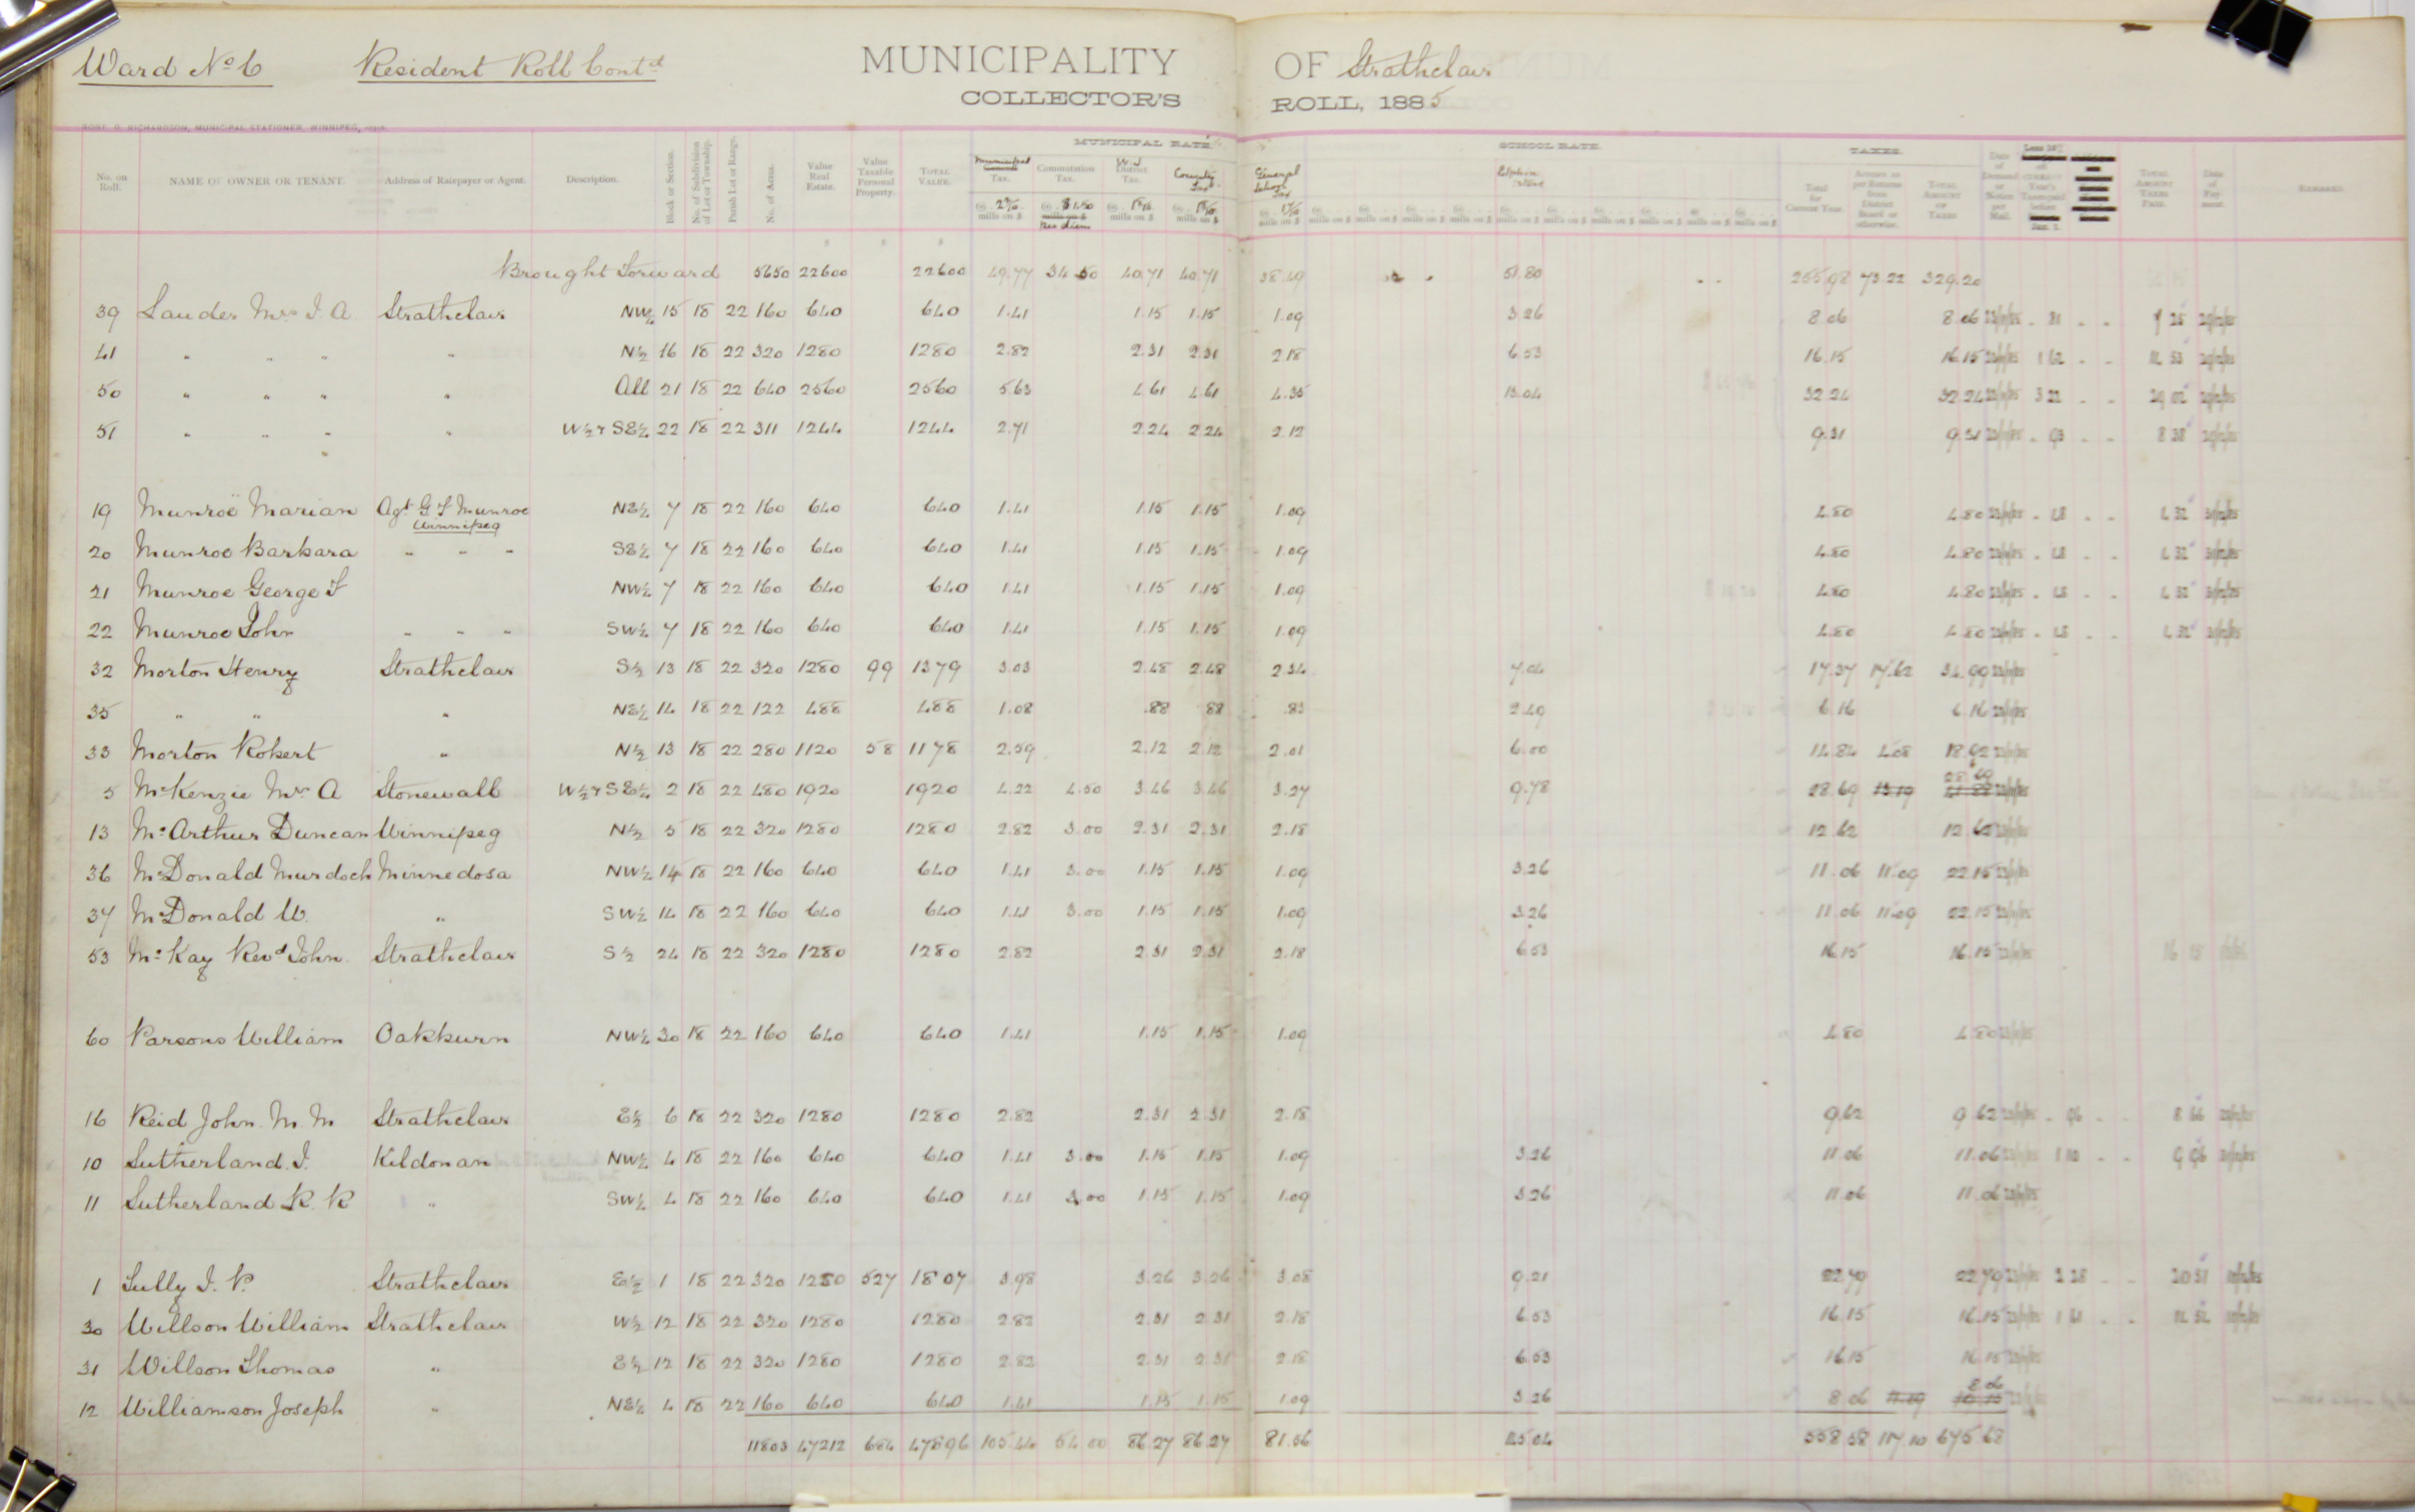 Ward No 6 Resident Roll Contd MUNICIPALITY OF Strathclair
COLLECTOR'S ROLL, 1885
ROBT. D. RICHARDSON, MUNICIPAL STATIONER, WINNIPEG,
MUNICIPAL RATE SCHOOL RATE TAXES
No. on Roll. NAME OF OWNER OR TENANT. Address of Ratepayer or Agent. Description. Block or Section. No. of Subdivision of Lot or Township. Parish Lot or Range. No. of Acres. Value Real Estate. Value Taxable Personal Property. TOTAL VALUE. Municipal Tax. Commutation Tax. District Tax. County Tax General School Tax Total for Current Year. TOTAL AMOUNT OF TAXES TOTAL AMOUNT TAXES PAID. Date of Payment. REMARKS.
Brought Forward 5650 22600 22600 49.77 34.50 40.71 40.71 38.49 51.80 255.98 73.22 329.20
39 Lauder Mrs J. A. Strathclair NW¼ 15 18 22 160 640 640 1.41 1.15 1.15 1.09 3.26 8.06 8.06
41 " " " " N½ 16 18 22 320 1280 1280 2.82 2.31 2.31 2.18 6.53 16.15 16.15 1 62
50 " " " " All 21 18 22 640 2560 2560 5.63 4.61 4.61 4.35 13.04 32.24 32.24 3 22 29 02
51 " " " " W½ & SE¼ 22 18 22 311 1244 1244 2.71 2.24 2.24 2.12 9.31 9.31 93 8 38
19 Munroe Marian Agt G F Munroe NE¼ 7 18 22 160 640 640 1.41 1.15 1.15 1.09 4.80 4.80 48 4 32
Winnipeg
20 Munroe Barbara " " " SE¼ 7 18 22 160 640 640 1.41 1.15 1.15 1.09 4.80 4.80 48 4 32
21 Munroe George F NW¼ 7 18 22 160 640 640 1.41 1.15 1.15 1.09 4.80 4.80 48 4 32
22 Munroe John " " " SW¼ 7 18 22 160 640 640 1.41 1.15 1.15 1.09 4.80 4.80 48 4 32
32 Morton Henry Strathclair S½ 13 18 22 320 1280 99 1379 3.03 2.48 2.48 2.34 7.04 17.37 17.62 34.99
35 " " " NE¼ 14 18 22 122 488 488 1.08 .88 88 .83 2.49 6 16 6.16
33 Morton Robert " N½ 13 18 22 280 1120 58 1178 2.59 2.12 2.12 2.01 6.00 14.84 4.08 18.92
5 McKenzie Mr A Stonewall W½ & SE¼ 2 18 22 480 1920 1920 4.22 4.50 3.46 3.46 3.27 9.78 28.69 13 19 28.69
13 McArthur Duncan Winnipeg N½ 5 18 22 320 1280 1280 2.82 3.00 2.31 2.31 2.18 12 62 12.62
36 McDonald Murdoch Minnedosa NW¼ 14 18 22 160 640 640 1.41 3.00 1.15 1.15 1.09 3.26 11.06 11.09 22.15
37 McDonald W. " SW¼ 14 18 22 160 640 640 1.41 3.00 1.15 1.15 1.09 3.26 11.06 11.09 22.15
53 McKay Revd John Strathclair S½ 24 18 22 320 1280 1280 2.82 2.31 2.31 2.18 6.53 16.15 16.15 16 15
60 Parsons William Oakburn NW¼ 30 18 22 160 640 640 1.41 1.15 1.15 1.09 4.80 4.80
16 Reid John M M Strathclair E½ 6 18 22 320 1280 1280 2.82 2.31 2.31 2.18 9.62 9.62 96 8 66
10 Sutherland J. Kildonan NW¼ 4 18 22 160 640 640 1.41 3.00 1.15 1.15 1.09 3.26 11.06 11.06 1 10 9 96
11 Sutherland R. R " SW¼ 4 18 22 160 640 640 1.41 3.00 1.15 1.15 1.09 3.26 11.06 11.06
1 Tully J. P. Strathclair E½ 1 18 22 320 1280 527 1807 3.98 3.26 3.26 3.08 9.21 22.79 22.79 2 28 20 51
30 Willson William Strathclair W½ 12 18 22 320 1280 1280 2.82 2.31 2.31 2.18 6.53 16.15 16.15 1 61
31 Willson Thomas " E½ 12 18 22 320 1280 1280 2.82 2.31 2.31 2.18 6.53 16.15 16.15
12 Williamson Joseph " NE¼ 4 18 22 160 640 640 1.41 1.15 1.15 1.09 3.26 8.06 8 06
11803 47212 684 47896 105.44 54.00 86.27 86.27 81.56 145.04 558 58 117.10 675 68